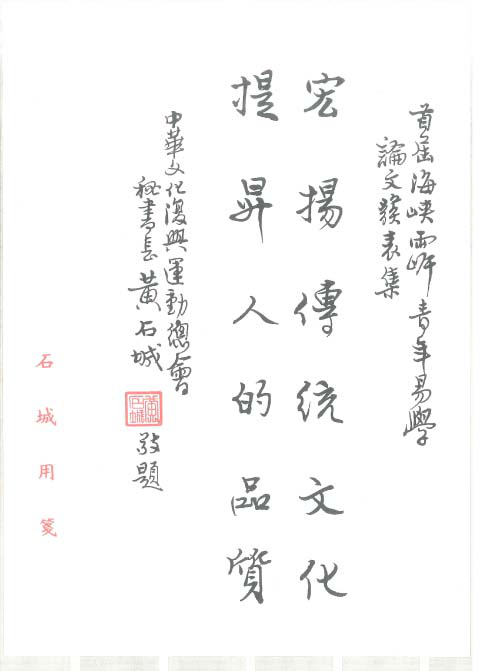 首屆海峽兩岸青年易學
論文發表集
宏揚傳統文化
提昇人的品質
中華文化復興運動總會
秘書長黃石城
敬題
石城用箋